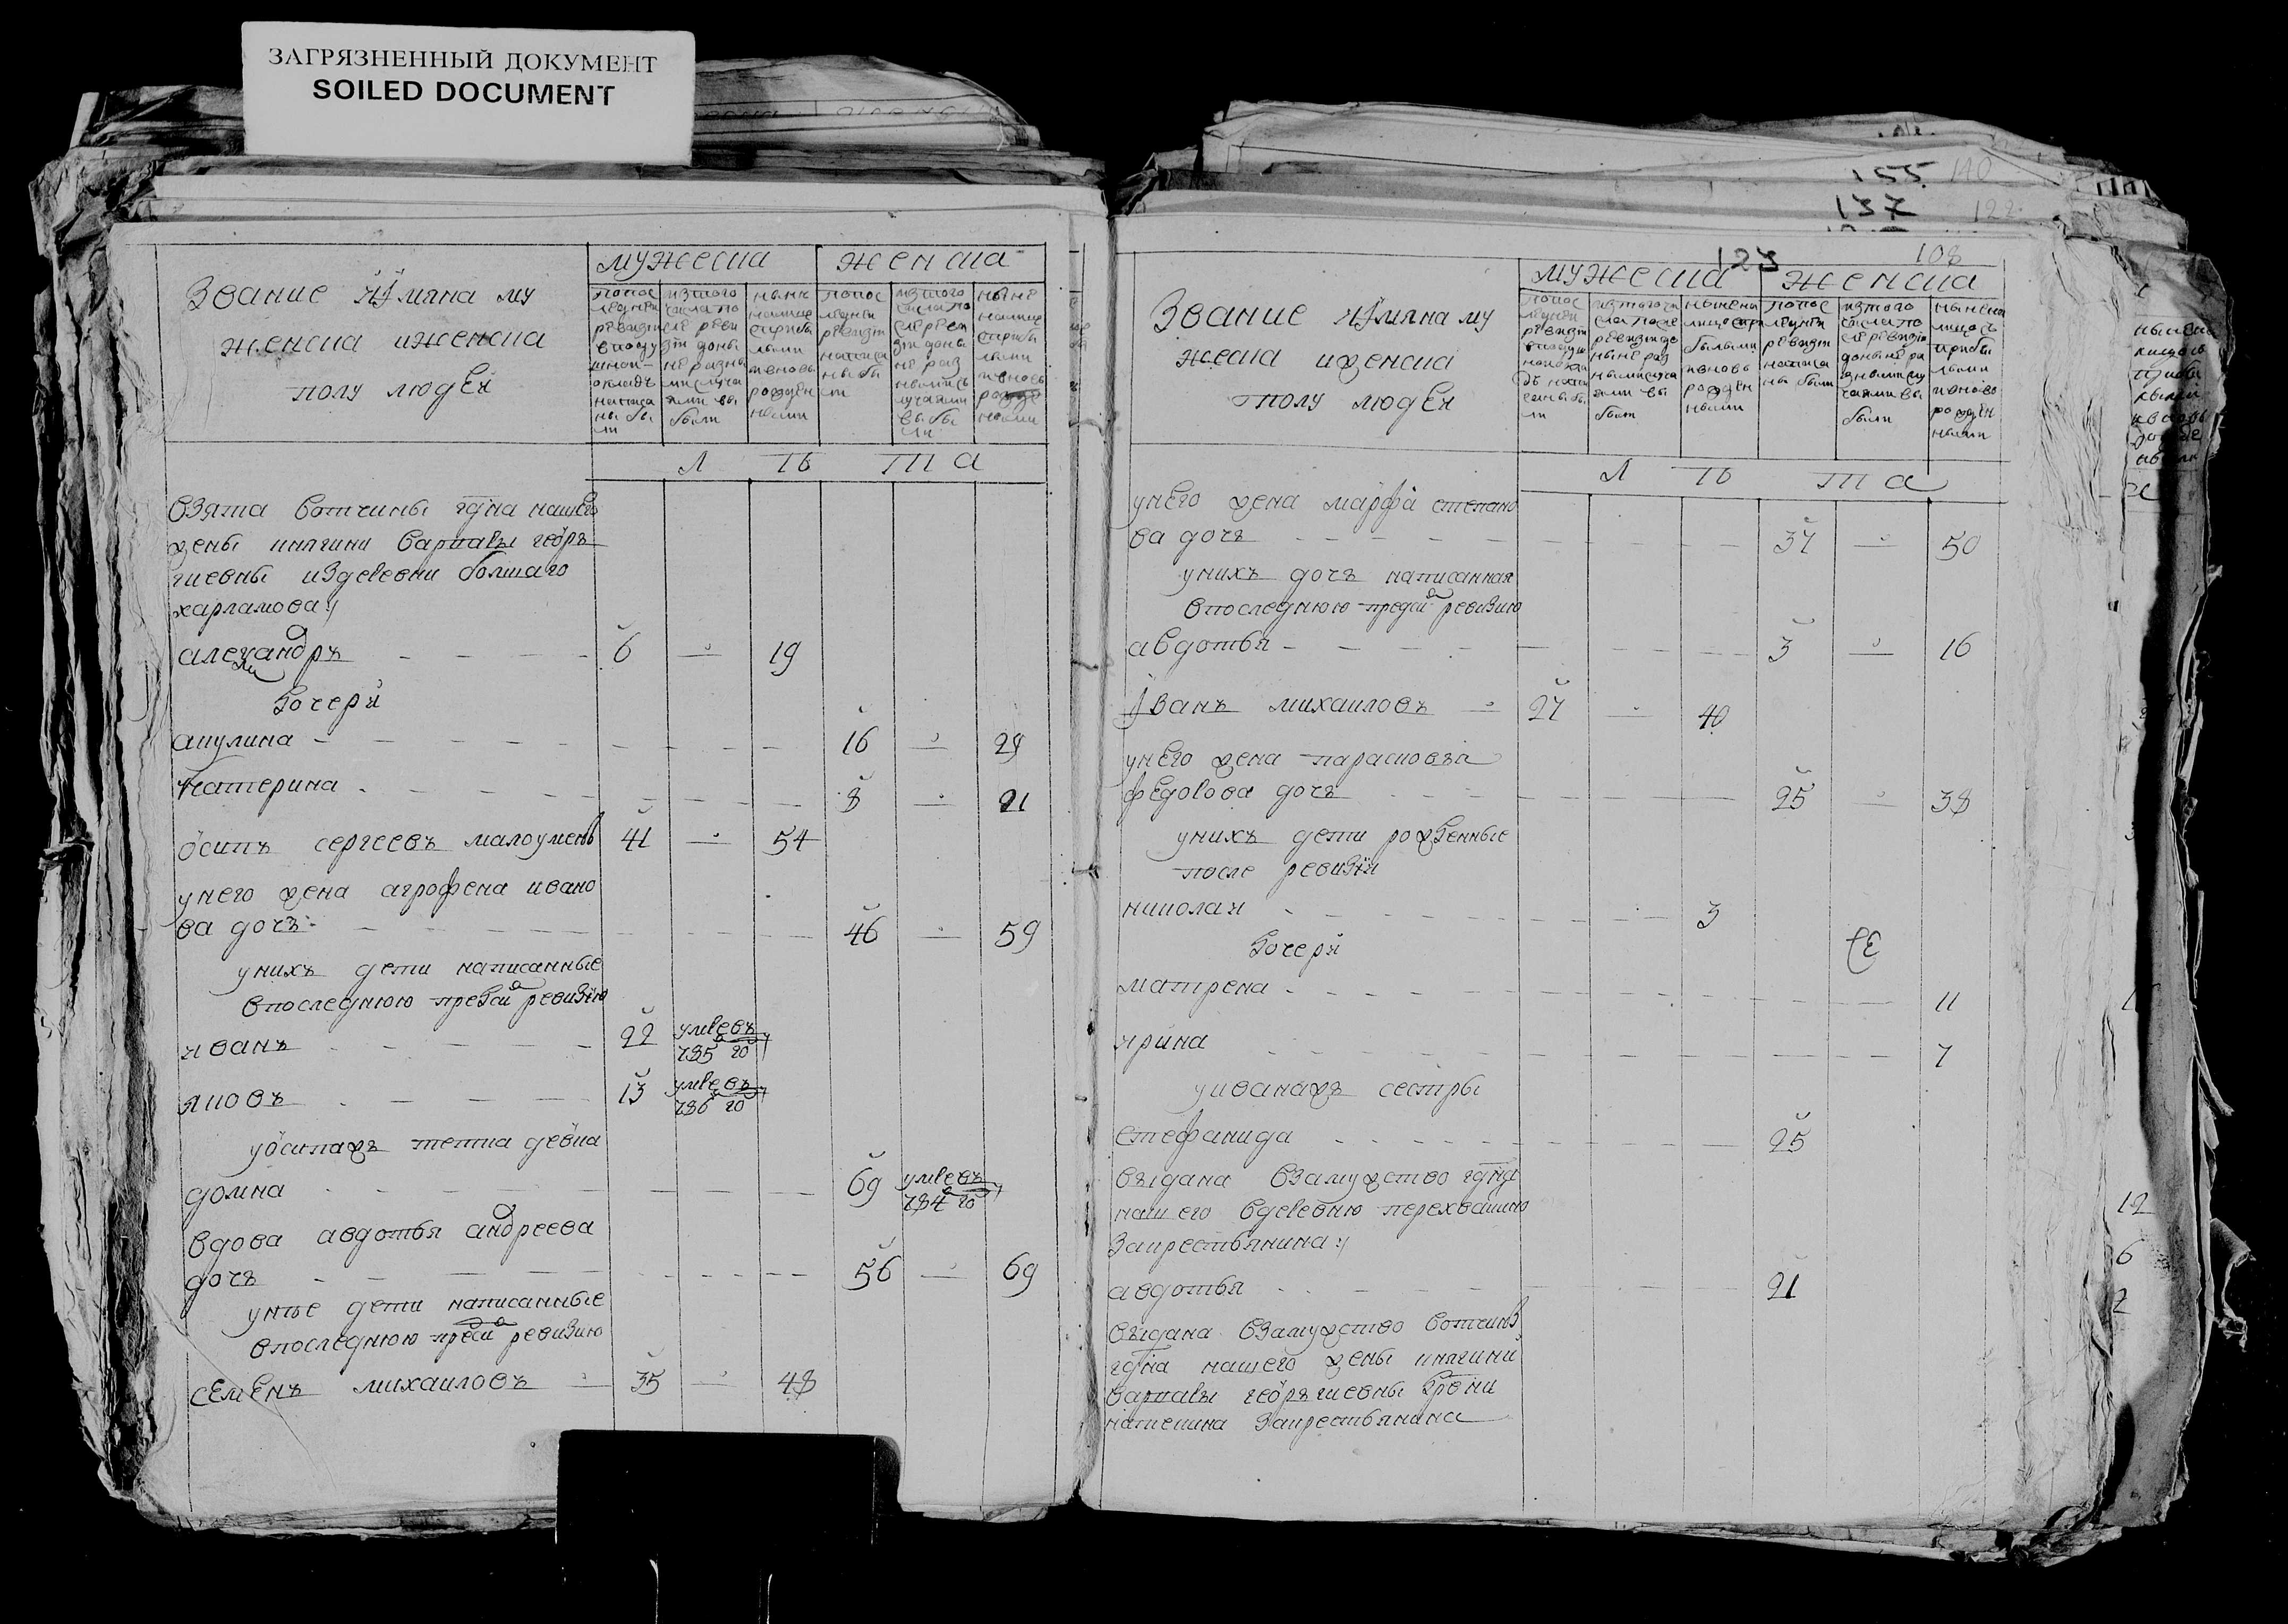 ЗАГРЯЗНЕННЫЙ ДОКУМЕНТ
SOILED DOCUMENT
Звание и имяна му
женска иженска
полу людеи
мужеска
женска
попос леднеи ревизии вподу шном окладъ написа ны бы ли
изтого числа по сле реви зіи доны не разны ми случа ями вы были
ныне налице сприбы лыми ивновь рожден ными
попос леднеи ревизіи написа ны бы ли
изтого числа по сле реви зіи доны не раз ными случаями вы бы ли
ныне налице сприбы лыми ивновь рожде ными
лѣта
взята вотчины гдна нашего
жены княгини варвары геѡръ
гиевны издеревни болшаго
харламова
александръ 6 19
дочери
акулина 16 29
катерина 8 21
ѡсипъ сергеевъ малоуменъ 41 54
унего жена агрофена ивано
ва дочь 46 59
унихъ дети написанные
впоследнюю предъ сей ревизию
иванъ 22 умре въ 785 го
яковъ 13 умре въ 786 го
уѡсипажъ тетка девка
домна 69 умре въ 784 го
вдова авдотья андреева
дочь 56 69
унее дети написанные
впоследнюю предъ сей ревизию
семенъ михаиловъ 35 48
155 110
137 122
123 108
Звание и имяна му
жеска иженска
полу людеи
мужеска
женска
попос леднеи ревизіи вподуш номокла дѣ напи саны бы ли
изтогочи сла после ревизіи до ныне раз нымислуча ями вы были
ныненa лице спри былыми ивновь рожден ными
попос леднеи ревизіи написа ны были
изтого числа по сле ревизіи доныне ра зными слу чаями вы были
ныне на лицо съ прибы лыми ивново рожден ными
лѣта
унего жена марфа степано
ва дочь 37 50
унихъ дочь написанная
впоследнюю предъ сей ревизию
авдотья 3 16
Іванъ михаиловъ 27 40
унего жена парасковья
федорова дочь 25 38
унихъ дети рожденные
после ревизіи
николаи 3
дочери
матрена 11
ирина 7
уиванажъ сестры
стефанида 25
выдана взамужство гдна
нашего вдеревню перехваткино
закрестьянина
авдотья 21
выдана взамужство вотчины
гдна нашего жены княгини
варвары геѡръгиевны
закрестьянина
12
6
2